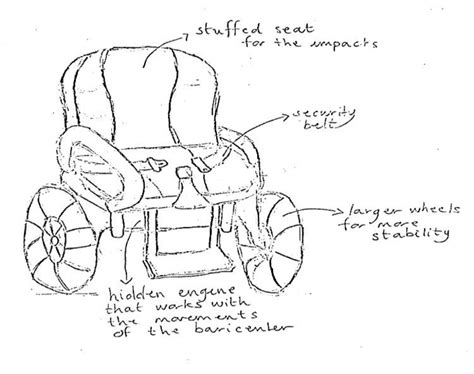 stuffed seat
for the impacts
security
belt
larger wheels
for more
stability
hidden engine
that works with
the movements
of the baricenter